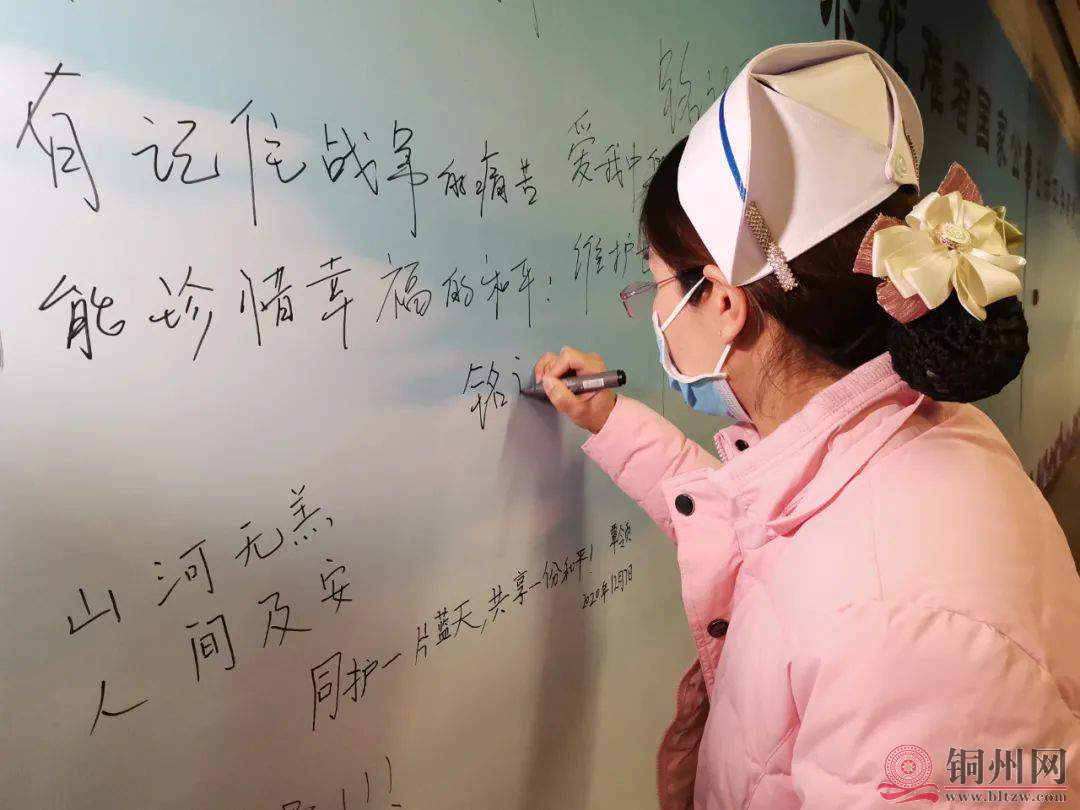 难者国家公祭
铭
有记住战争的痛苦
能珍惜幸福的和平!
爱我中
维护
铭
山河无恙
人间及安
同护一片蓝天,共享一份和平!
2020年12月7日
铜州网
www.bltzw.com